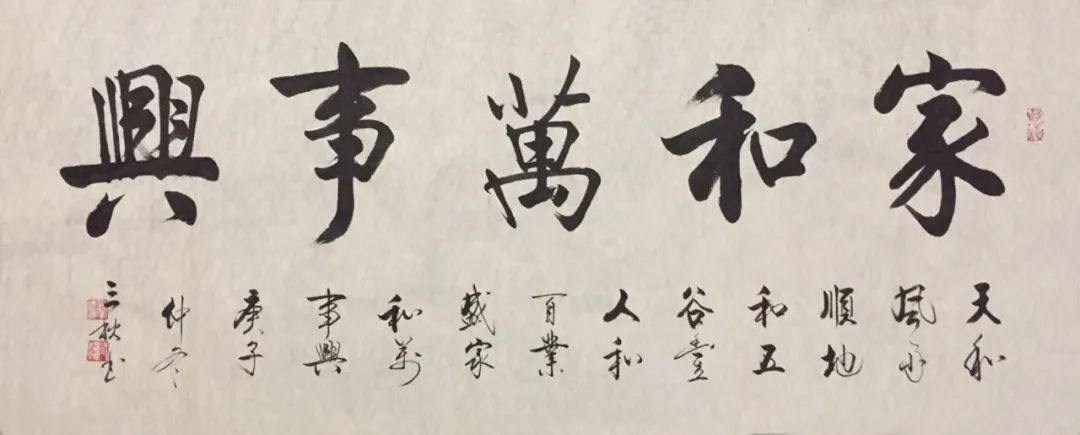 家和萬事興
天和
風雨
順地
和五
谷豐
人和
百業
盛家
和萬
事興
庚子
仲冬
三秋书